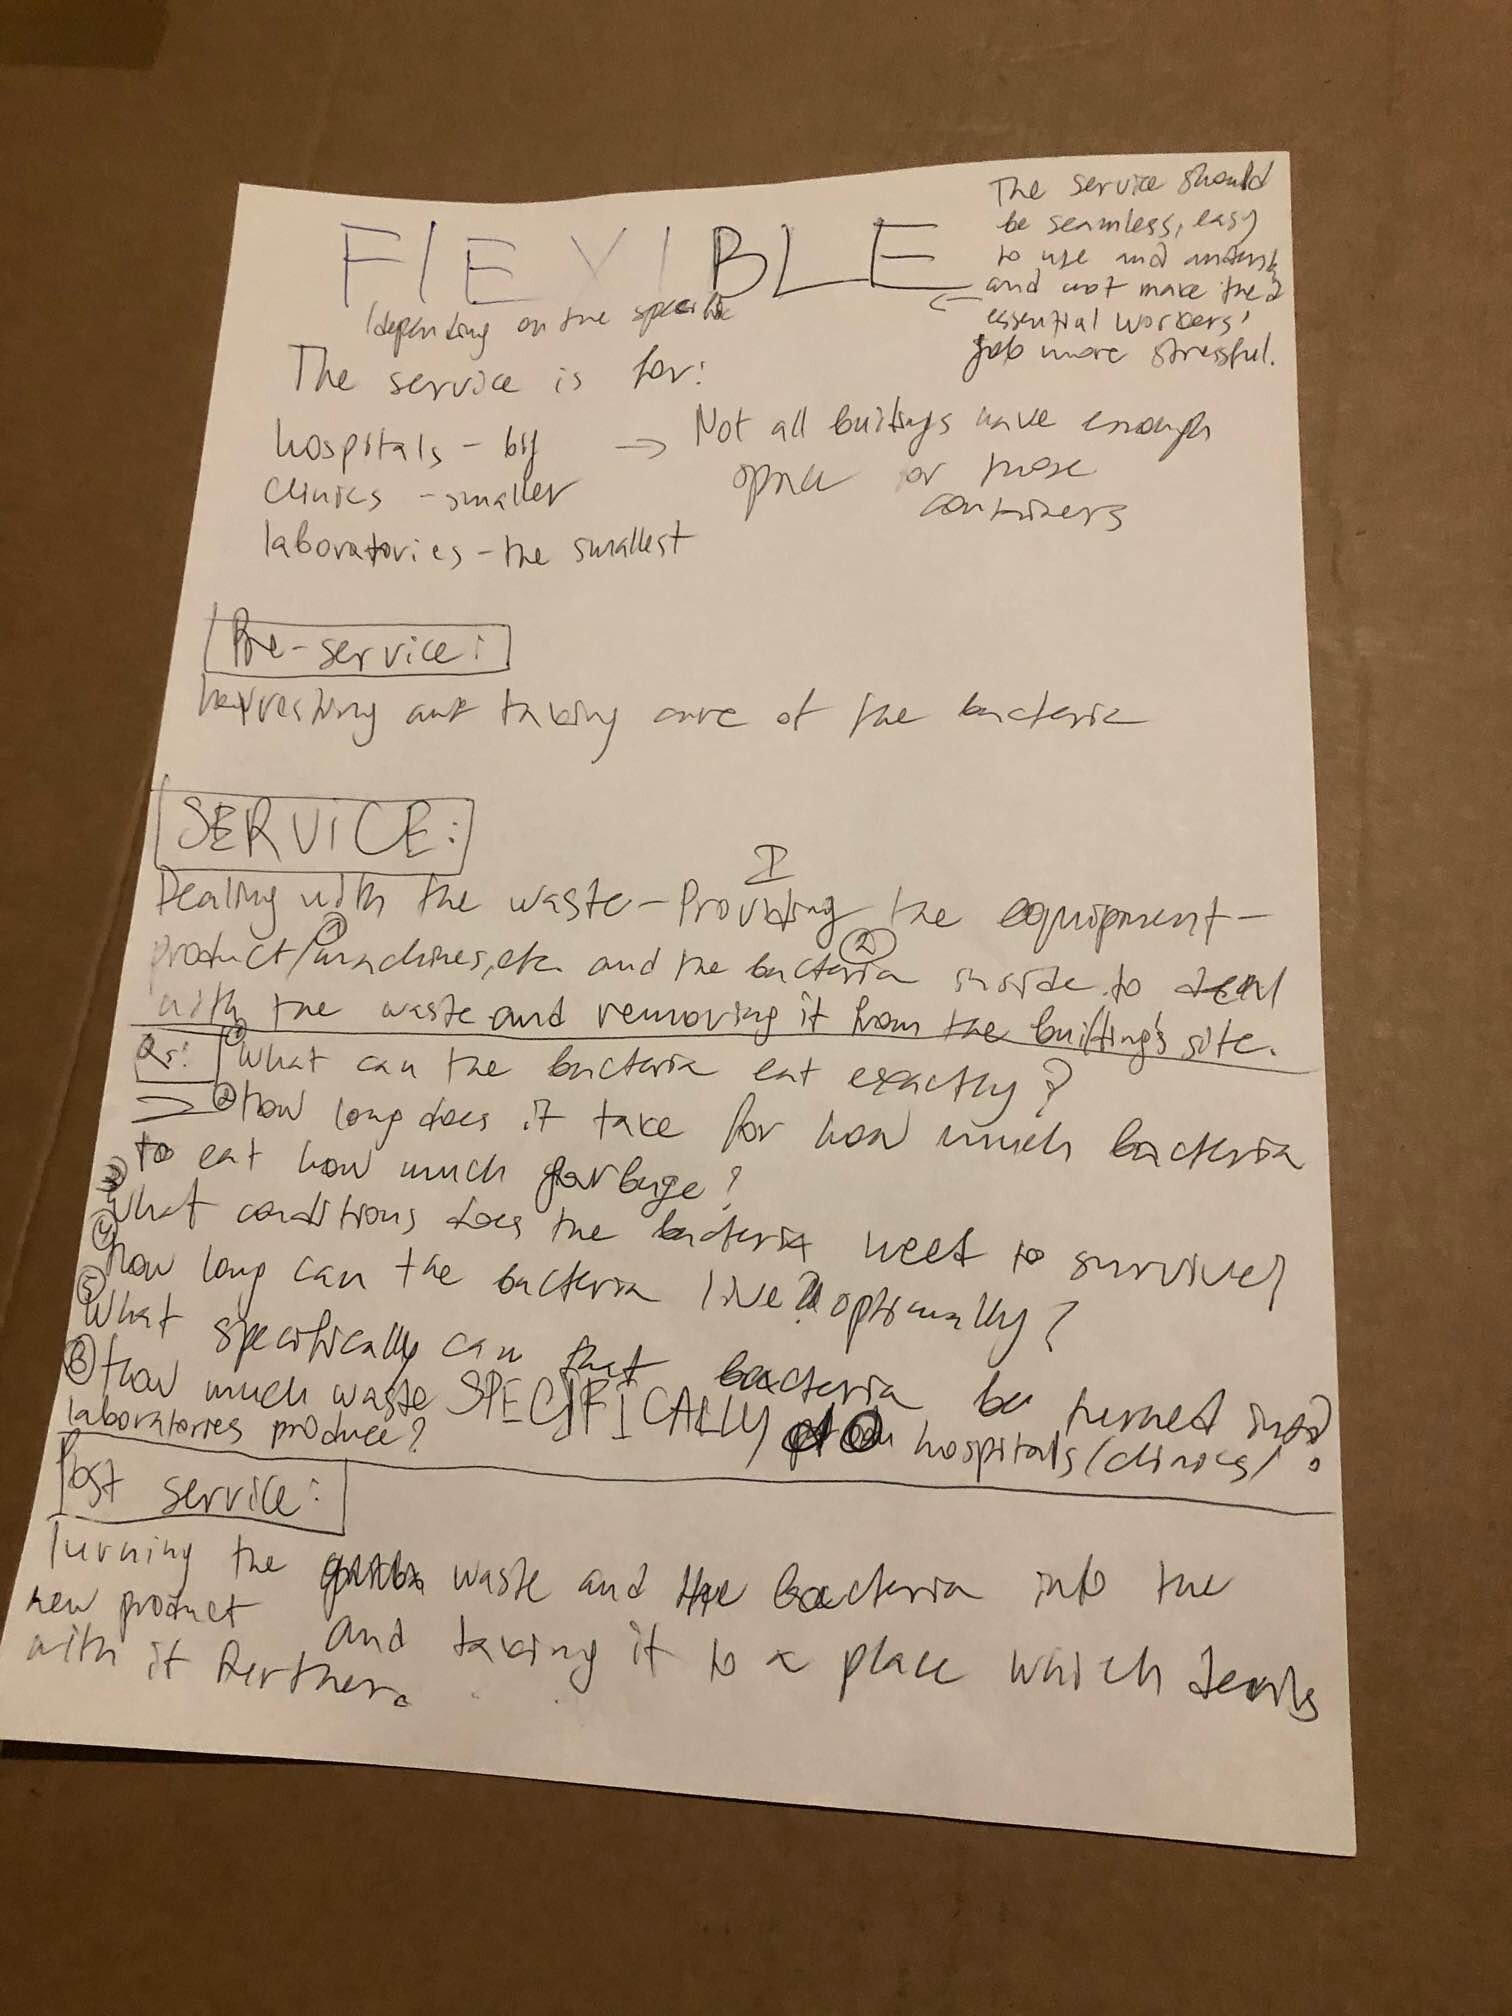 FlEXIBLE
The service should
be seamless, easy
to use and
and not make the
essential workers'
job more stressful.
(depending on the specific
The service is for:
hospitals - big → Not all buildings have enough
clinics - smaller space or those
containers
laboratories - the smallest
Pre-service:
harvesting and taking care of the bacteria
SERVICE:
I
Dealing with the waste - Providing the equipment -
① ②
product/machines, etc. and the bacteria inside to deal
with the waste and removing it from the building's site.
Qs: ① What can the bacteria eat exactly?
② How long does it take for how much bacteria
to eat how much garbage?
③ What conditions does the bacteria need to survive?
④ How long can the bacteria live optimally?
⑤ What specifically can that bacteria be turned into?
⑥ How much waste SPECIFICALLY do hospitals/clinics/
laboratories produce?
Post service:
Turning the waste and the bacteria into the
new product and taking it to a place which deals
with it further.